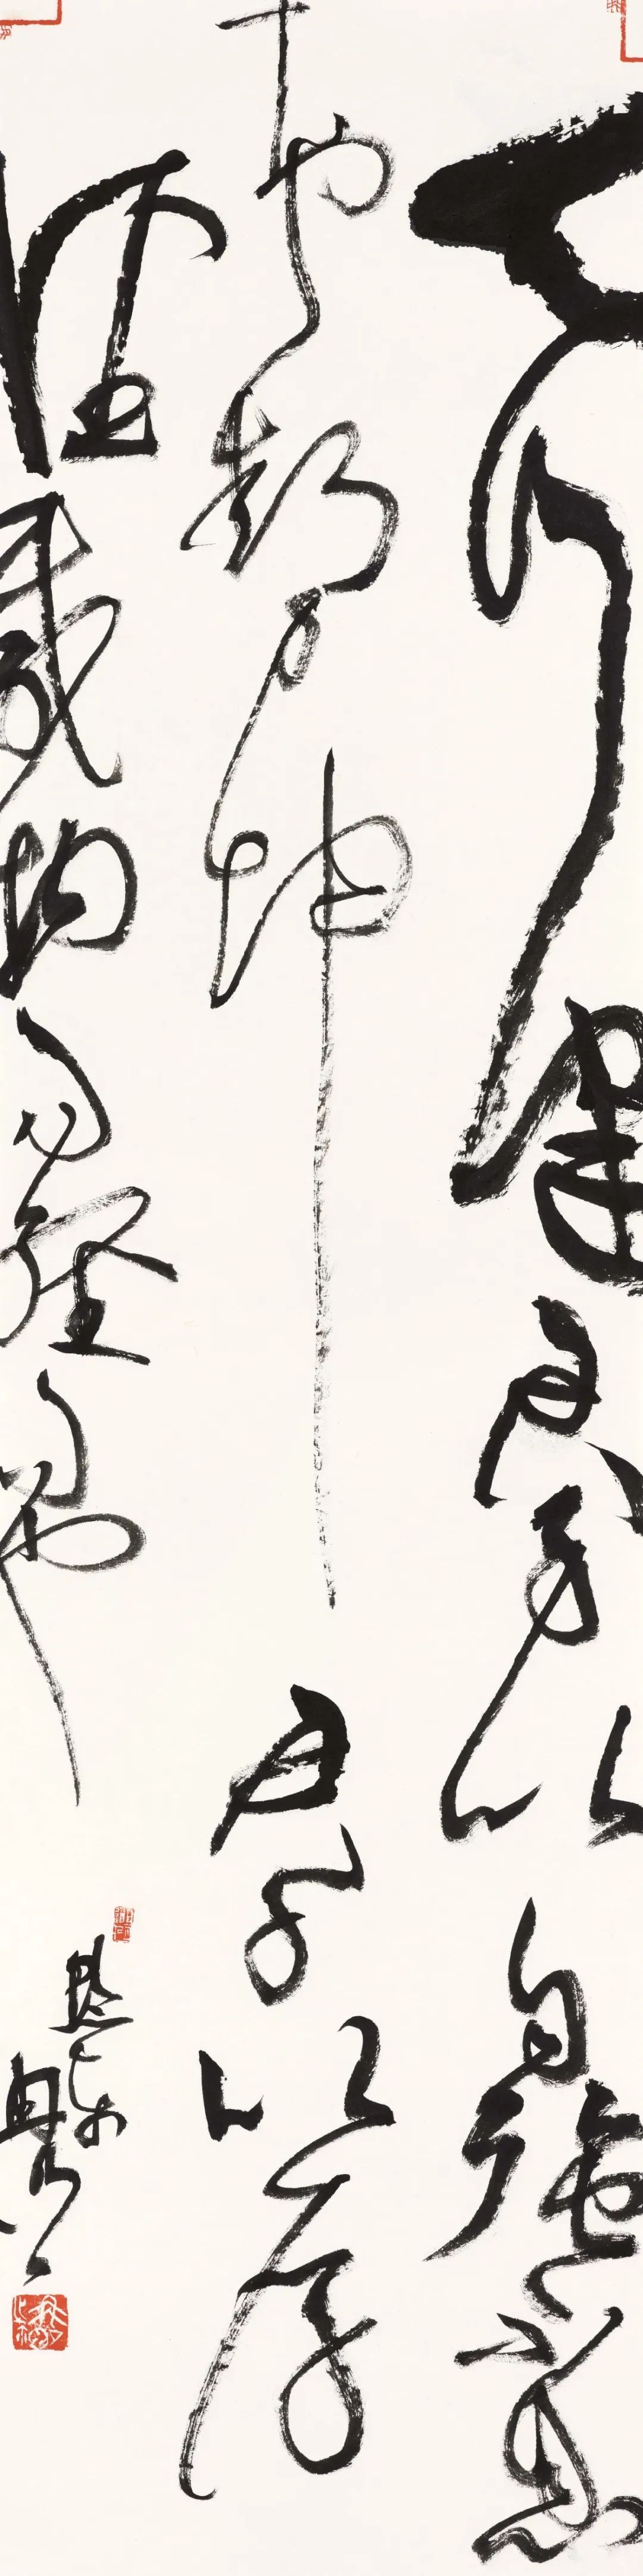 天行健君子以自強不息
地勢坤君子以厚
德載物易經